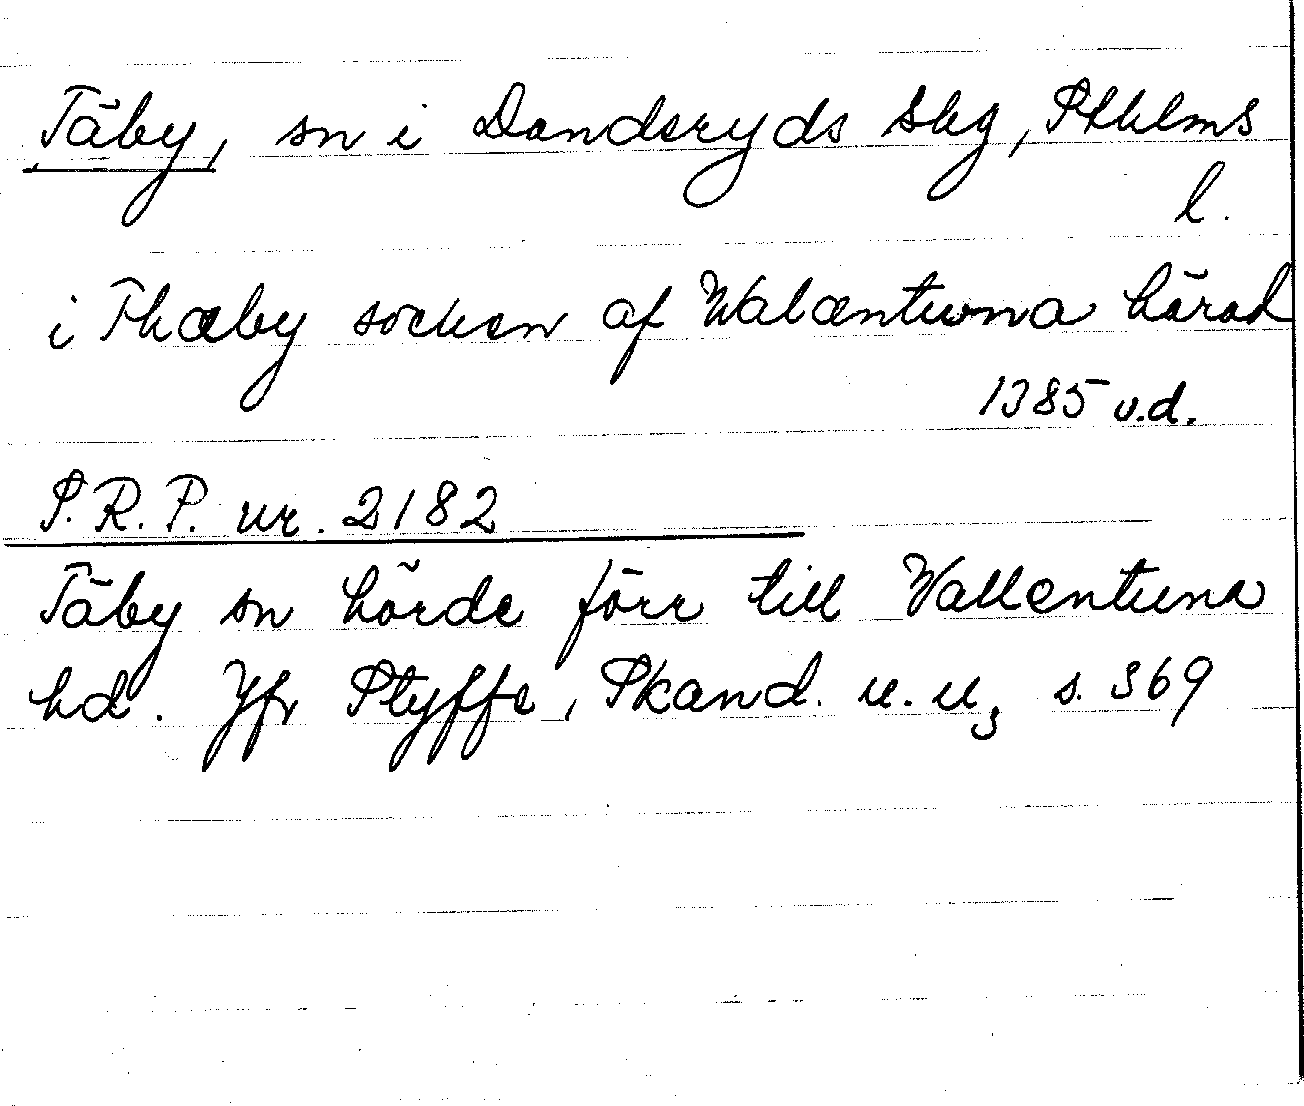 Täby, sn i Danderyds skg, Sthlms
l.
i Thæby socken af Walæntuna härad
1385 u.d.
S.R.P. nr. 2182
Täby sn hörde förr till Vallentuna
hd. Jfr Styffe, Skand. u. u, s. 369